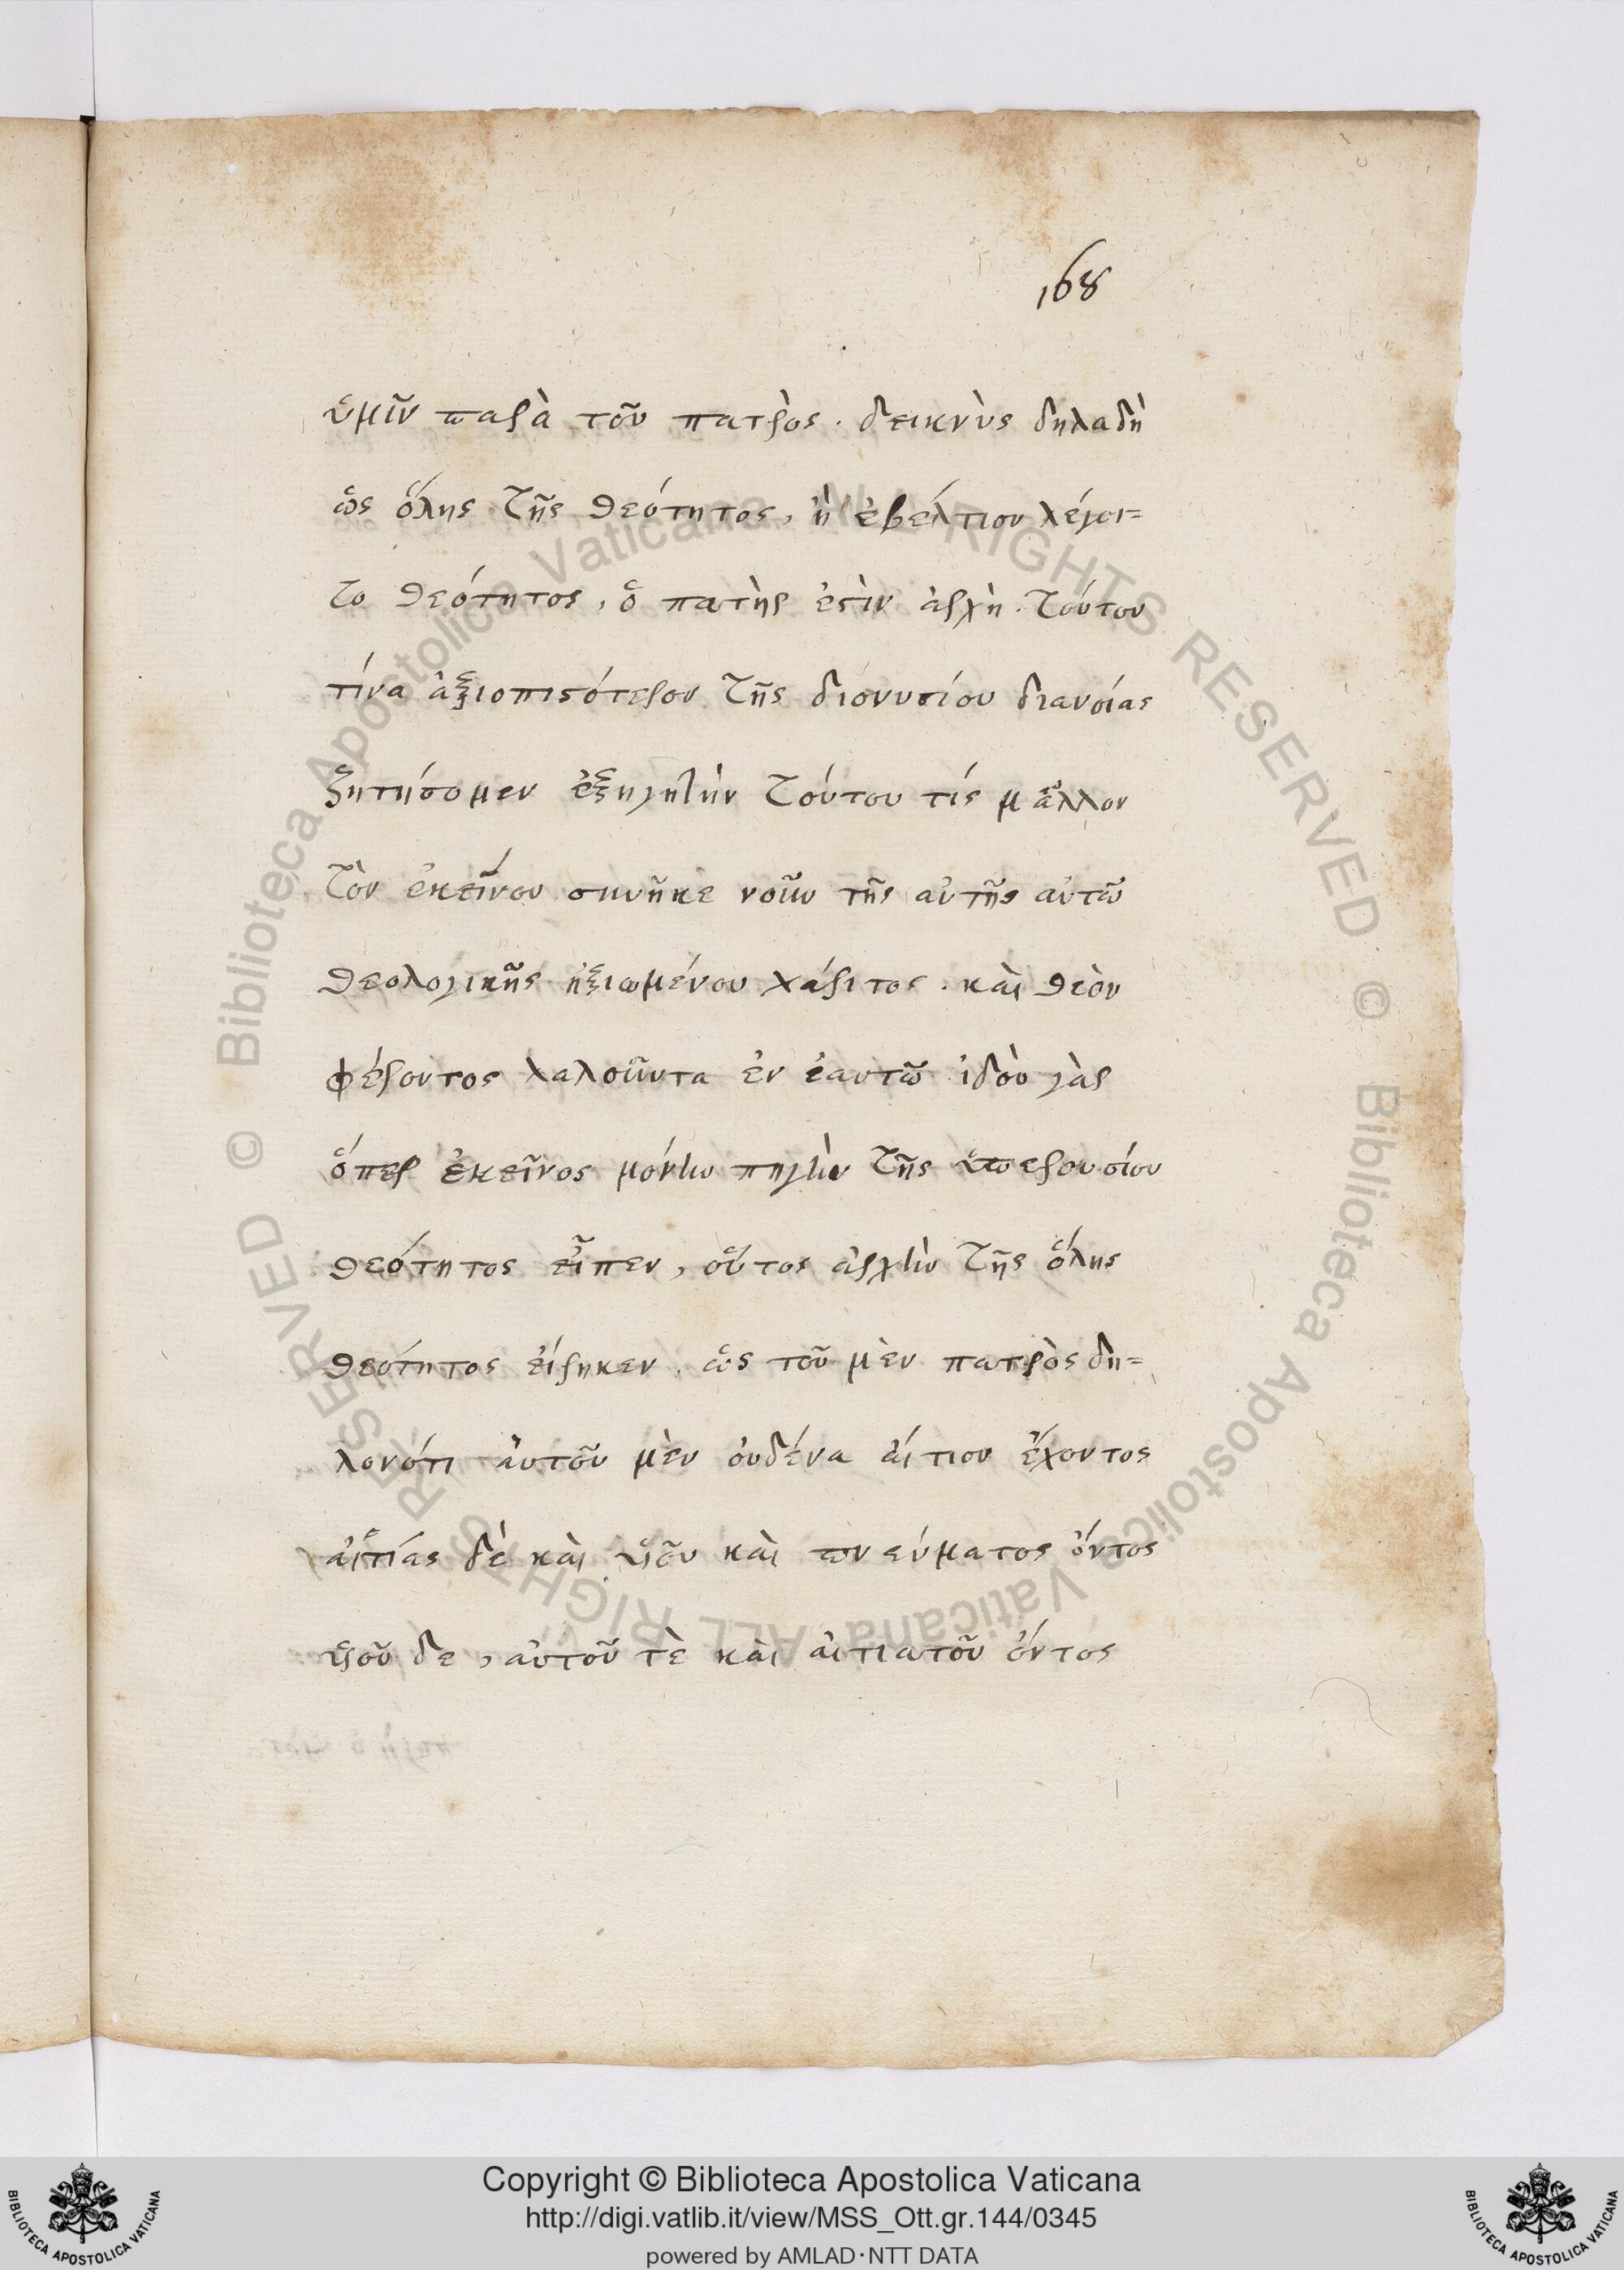 168
ὑμῖν παρὰ τοῦ πατρὸς. δεικνὺς δηλαδὴ
ὡς ὅλης τῆς θεότητος, ἢ ἐβέλτιον λέγοι=
το θεότητος, ὁ πατὴρ ἐστὶν ἀρχὴ. τούτου
τίνα ἀξιοπιστότερον τῆς διονυσίου διανοίας
ζητήσομεν ἐξηγητὴν τούτου τίς μᾶλλον
τὸν ἐκείνου συνῆκε νοῦν τῆς αὐτῆς αὐτῶ
θεολογικῆς ἠξιωμένου χάριτος. καὶ θεὸν
φέροντος λαλοῦντα ἐν ἑαυτῶ ἰδοὺ γὰρ
ὅπερ ἐκεῖνος μόνην πηγὴν τῆς ὑπερουσίου
θεότητος εἶπεν, οὗτος ἀρχὴν τῆς ὅλης
θεότητος εἴρηκεν. ὡς τοῦ μὲν πατρὸς δη=
λονότι αὐτοῦ μὲν οὐδένα αἴτιον ἔχοντος
αἰτίας δὲ καὶ υἱοῦ καὶ πνεύματος ὄντος
υἱοῦ δε, αὐτοῦ τὲ καὶ αἰτιατοῦ ὄντος
Copyright © Biblioteca Apostolica Vaticana
http://digi.vatlib.it/view/MSS_Ott.gr.144/0345
powered by AMLAD·NTT DATA
BIBLIOTECA APOSTOLICA VATICANA
BIBLIOTECA APOSTOLICA VATICANA
© Biblioteca Apostolica Vaticana ALL RIGHTS RESERVED
© Biblioteca Apostolica Vaticana ALL RIGHTS RESERVED